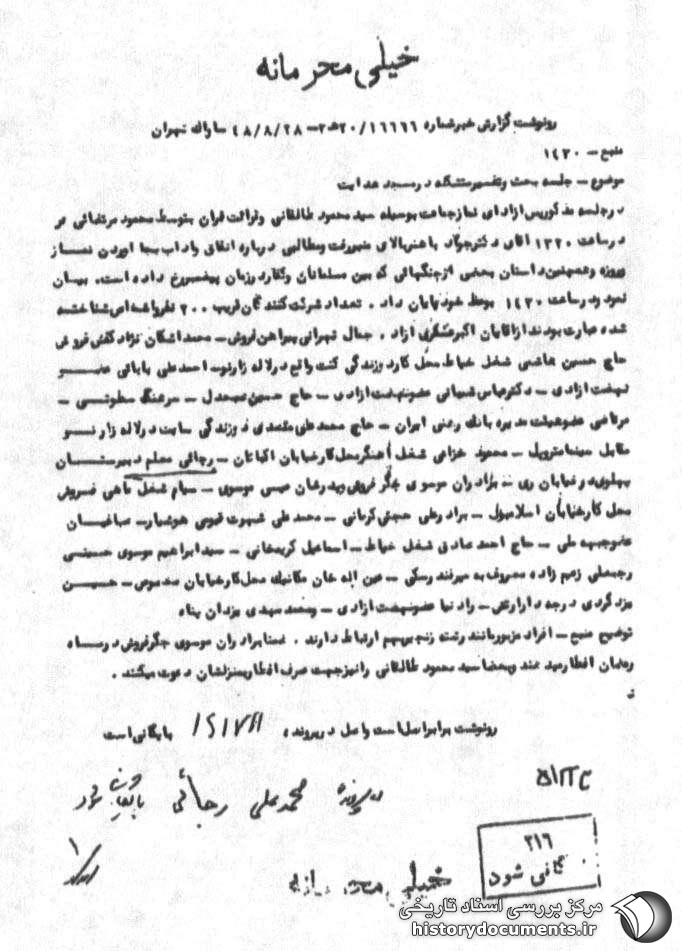 خیلی محرمانه
رونوشت گزارش خبر شماره ۲۰/۱۶۶۶۶ هـ۳ – ۴۸/۸/۲۸ ساواک تهران
منبع – ۱۴۳۰
موضوع – جلسه بحث و تفسیر متشکله در مسجد هدایت
در جلسه مذکور پس از ادای نماز جماعت بوسیله سید محمود طالقانی و قرائت قران بتوسط محمود مرتضائی فر
در ساعت ۱۳۲۰ اقای دکتر جواد باهنر بالای منبر رفت و مطالبی درباره انفاق واداب بجا اوردن نماز
وروزه و همچنین داستان بعضی از جنگهائی که بین مسلمانان و کفار در زمان پیغمبر رخ داده است. بیان
نمود و در ساعت ۱۴۳۰ بوعظ خود پایان داد . تعداد شرکت کنندگان قریب ۲۰۰ نفر و اشخاص شناخته
شده عبارت بودند از اقایان اکبر عسگری ازاد . جمال تهرانی پیراهن فروش – محمد اشکان نژاد کفش فروش
حاج حسین هاشمی شغل خیاط محل کار دوزندگی گشت واقع در لاله زار نو – احمد علی بابائی عضو
نهضت ازادی – دکتر عباس شیبانی عضو نهضت ازادی – حاج حسین – سرهنگ سطوتی –
مرتاضی عضو هیئت مدیره بانک رهنی ایران – حاج محمد علی دوزندگی سایت در لاله زار نو
مقابل سینما متروپل – محمود خزاعی شغل اهنگر محل کار خیابان اکباتان – رجائی معلم دبیرستان
پهلوی در خیابان ری – برادران موسوی جگر فروش و پدرشان عیسی موسوی – شغل ماهی فروش
محل کار خیابان اسلامبول – برادر علی حجتی کرمانی – محمد علی شهرت قیومی هوشیار – صباغیان
عضو جبهه ملی – حاج احمد صادق شغل خیاط – اسماعیل کریمخانی – سید ابراهیم موسوی حسینی
رجبعلی زعیم زاده معروف به میرفندرسکی – عین اله خان مکانیک محل کار خیابان مخصوص – حسین
یزدگردی درجه دار ارتش – رادنیا عضو نهضت ازادی – و محمد مهدی یزدان پناه
توضیح منبع – افراد مزبور مانند رشته زنجیر بهم ارتباط دارند . ضمنا برادران موسوی جگر فروش در ماه
رمضان افطار میدهند و بعضا سید محمود طالقانی را نیز جهت صرف افطار بمنزلشان دعوت میکنند .
رونوشت برابر اصل است و اصل در پرونده ۱۲۱۷۸۱ بایگانی است
در پرونده محمد علی رجائی بایگانی شود
۵۱۲۲ ح
۳۱۶
گانی شود
خیلی محرمانه
مرکز بررسی اسناد تاریخی
historydocuments.ir